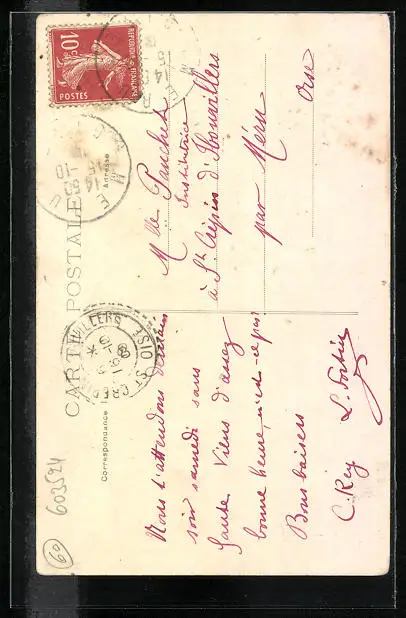 CARTE POSTALE
Correspondance
Adresse
RÉPUBLIQUE FRANÇAISE
10c
POSTES
Nous t'attendons demain
soir samedi sans
faute Viens d'assez
bonne heure, n'est-ce pas
Bons baisers
C. Rey L. Fortin
Mlle Fauchet
Institutrice
à St Crépin d'Ibouvillers
par Méru
Oise
OISE
603524
60